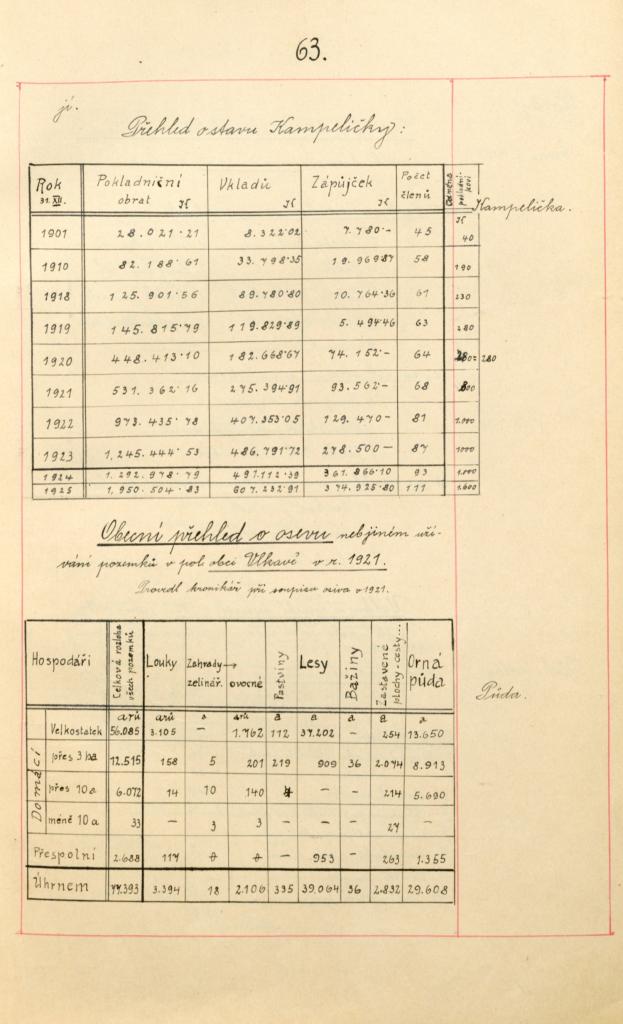 63.
jí.
Přehled o stavu Kampeličky:
Rok 31. XII. Pokladniční obrat K Vkladů K Zápůjček K Počet členů Odměna pokladníkovi K
Kampelička.
1901 28.021·21 8.322·02 7.780·– 45 40
1910 82.188·61 33.798·35 19.969·87 58 190
1918 125.901·56 89.780·80 10.764·36 61 230
1919 145.815·79 119.829·89 5.494·46 63 280
1920 448.413·10 182.668·67 74.152·– 64 280
1921 531.362·16 275.394·91 93.562·– 68 800
1922 973.435·78 407.353·05 129.470·– 81 1.000
1923 1,245.444·53 486.791·72 278.500– 87 1000
1924 1.292.978·79 497.112·39 361.866·10 93 1.000
1925 1,950.504·83 607.232·91 374.925·80 111 1.600
Obecní přehled o osevu neb jiném uží-
vání pozemků v pol. obci Vlkavě v r. 1921.
Provedl kronikář při soupisu osiva v 1921.
Hospodáři Celková rozloha všech pozemků Louky Zahrady→ zelinář. ovocné Pastviny Lesy Bažiny Zastavené plochy - cesty... Orná půda
Půda.
arů arů a arů a a a a a
Domácí
Velkostatek 56.085 3.105 – 1.762 112 37.202 – 254 13.650
přes 3 ha 12.515 158 5 201 219 909 36 2.074 8.913
přes 10 a 6.072 14 10 140 4 – – 214 5.690
méně 10 a 33 – 3 3 – – 27 –
Přespolní 2.688 117 0 0 – 953 – 263 1.355
Úhrnem 77.393 3.394 18 2.106 335 39.064 36 2.832 29.608